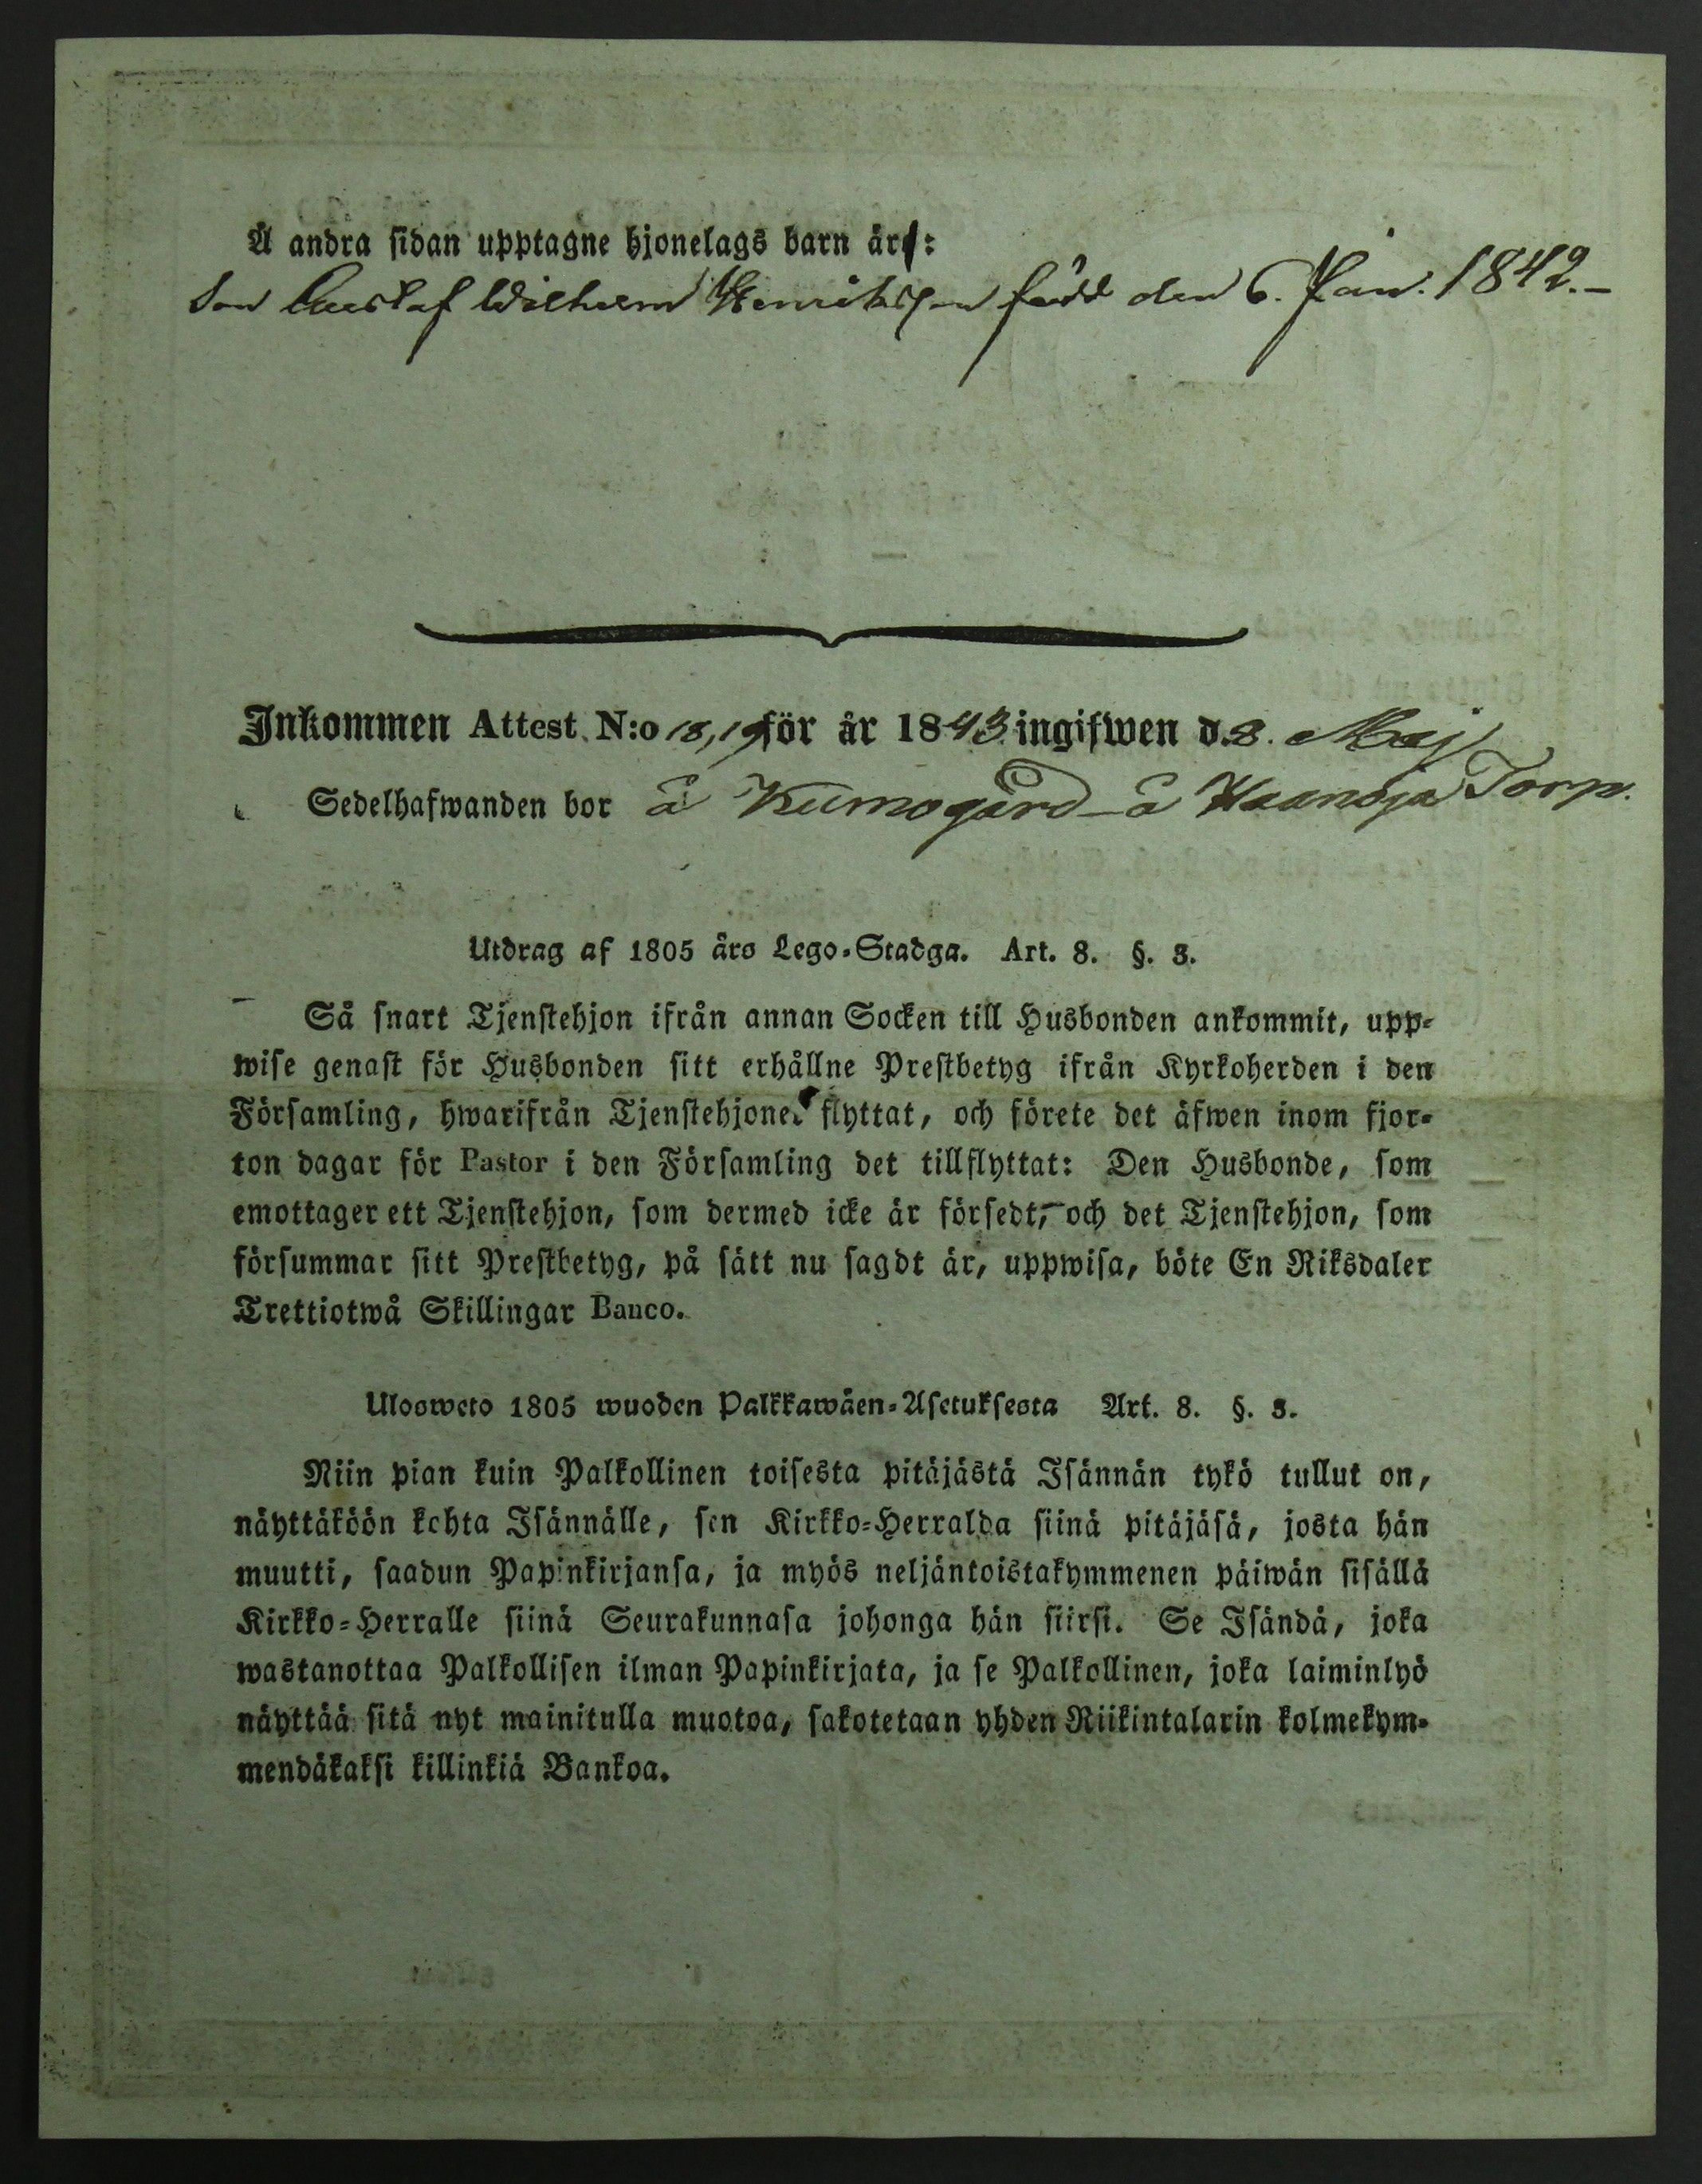 Å andra sidan upptagne hjonelags barn är:
Son Gustaf Wilhelm Henriksson född den 6. Jan. 1842.-
Inkommen Attest N:o 18,19 för år 1843 ingifwen d. 8. Maj
Sedelhafwanden bor å Kumogård - å Haanoja Torp.
Utdrag af 1805 års Lego-Stadga. Art. 8. §. 3.
Så snart Tjenstehjon ifrån annan Socken till Husbonden ankommit, upp-
wise genast för Husbonden sitt erhållne Prestbetyg ifrån Kyrkoherden i den
Församling, hwarifrån Tjenstehjonet flyttat, och förete det äfwen inom fjor-
ton dagar för Pastor i den Församling det tillflyttat: Den Husbonde, som
emottager ett Tjenstehjon, som dermed icke är försedt, och det Tjenstehjon, som
försummar sitt Prestbetyg, på sätt nu sagdt är, uppwisa, böte En Riksdaler
Trettiotwå Skillingar Banco.
Ulosweto 1805 wuoden Palkkawäen-Asetuksesta Art. 8. §. 3.
Niin pian kuin Palkollinen toisesta pitäjästä Isännän tykö tullut on,
näyttäköön kohta Isännälle, sen Kirkko-Herralda siinä pitäjäsä, josta hän
muutti, saadun Papinkirjansa, ja myös neljäntoistakymmenen päiwän sisällä
Kirkko-Herralle siinä Seurakunnasa johonga hän siirsi. Se Isändä, joka
wastanottaa Palkollisen ilman Papinkirjata, ja se Palkollinen, joka laiminlyö
näyttää sitä nyt mainitulla muotoa, sakotetaan yhden Riikintalarin kolmekym-
mendäkaksi killinkiä Bankoa.